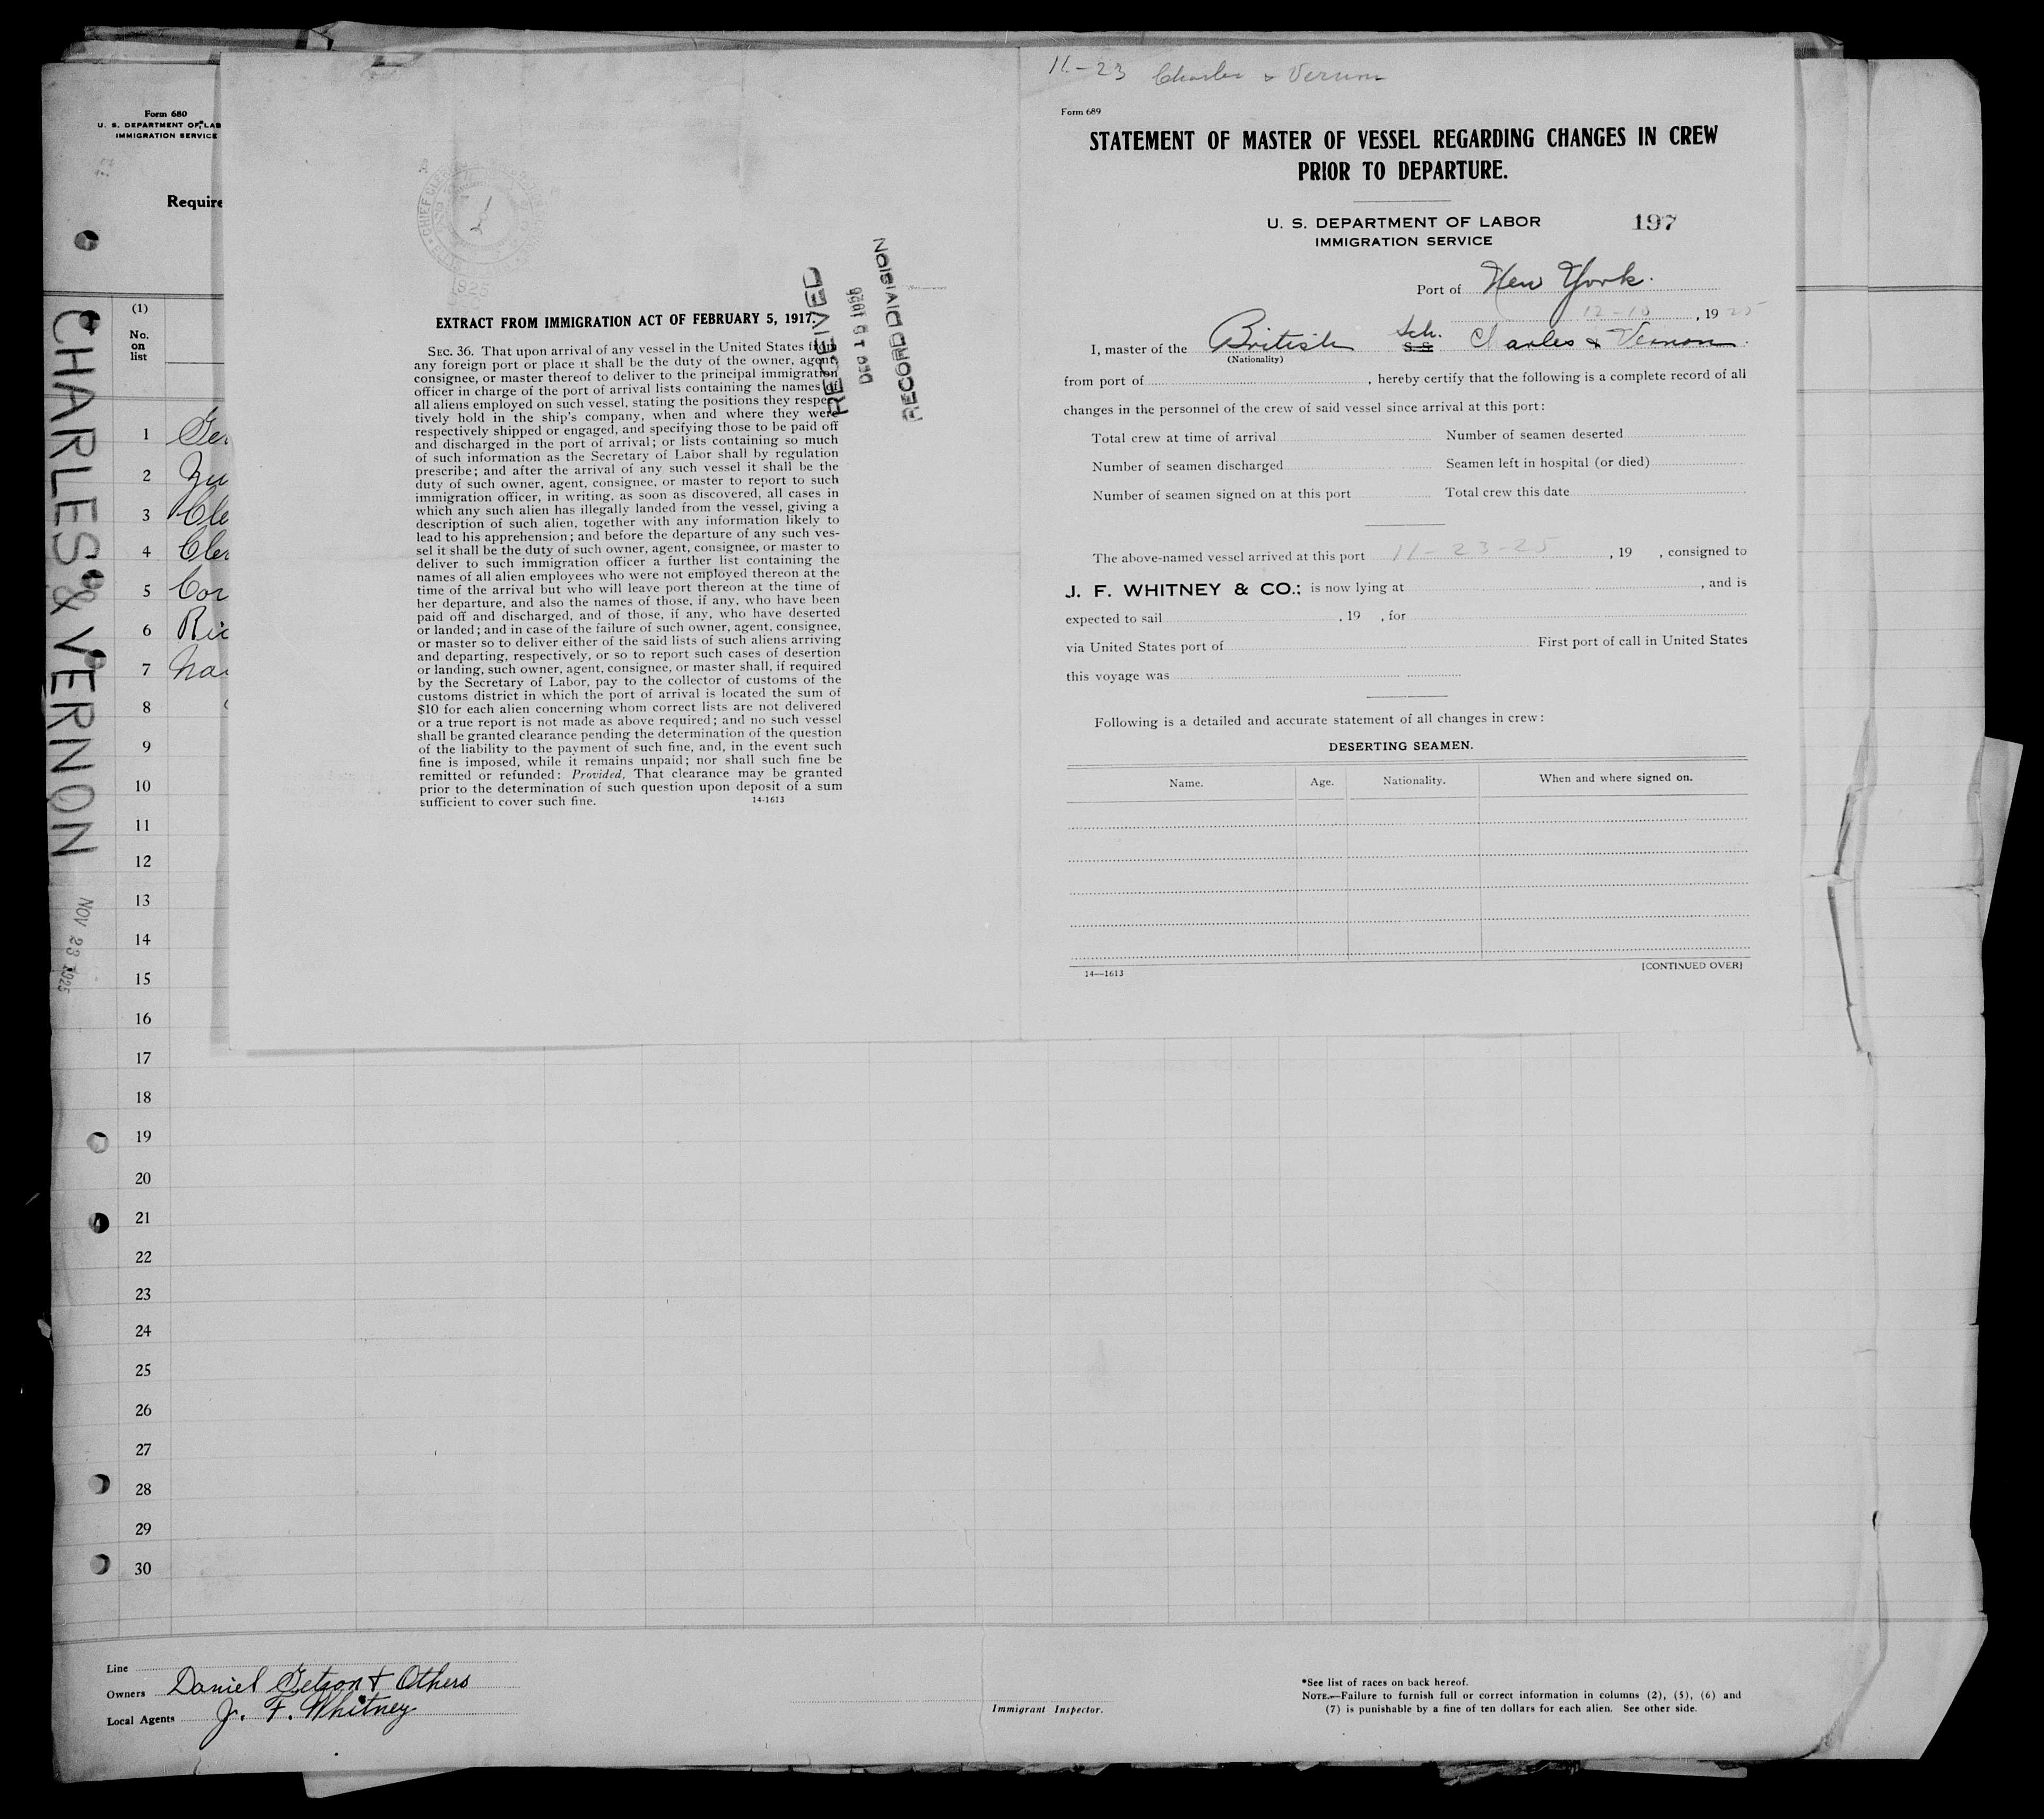 Form 680
U. S. DEPARTMENT OF LAB
IMMIGRATION SERVICE
Require
(1)
No.
on
list
1 Ger
2
3 Cle
4 Cler
5 Cor
6 Ric
7
8
9
10
11
12
13
14
15
16
17
18
19
20
21
22
23
24
25
26
27
28
29
30
CHARLES & VERNON
NOV 23 1925
CHIEF CLERK
1925
RECEIVED
RECORD DIVISION
EXTRACT FROM IMMIGRATION ACT OF FEBRUARY 5, 1917.
SEC. 36. That upon arrival of any vessel in the United States from
any foreign port or place it shall be the duty of the owner, agent,
consignee, or master thereof to deliver to the principal immigration
officer in charge of the port of arrival lists containing the names of
all aliens employed on such vessel, stating the positions they respec-
tively hold in the ship's company, when and where they were
respectively shipped or engaged, and specifying those to be paid off
and discharged in the port of arrival; or lists containing so much
of such information as the Secretary of Labor shall by regulation
prescribe; and after the arrival of any such vessel it shall be the
duty of such owner, agent, consignee, or master to report to such
immigration officer, in writing, as soon as discovered, all cases in
which any such alien has illegally landed from the vessel, giving a
description of such alien, together with any information likely to
lead to his apprehension; and before the departure of any such ves-
sel it shall be the duty of such owner, agent, consignee, or master to
deliver to such immigration officer a further list containing the
names of all alien employees who were not employed thereon at the
time of the arrival but who will leave port thereon at the time of
her departure, and also the names of those, if any, who have been
paid off and discharged, and of those, if any, who have deserted
or landed; and in case of the failure of such owner, agent, consignee,
or master so to deliver either of the said lists of such aliens arriving
and departing, respectively, or so to report such cases of desertion
or landing, such owner, agent, consignee, or master shall, if required
by the Secretary of Labor, pay to the collector of customs of the
customs district in which the port of arrival is located the sum of
$10 for each alien concerning whom correct lists are not delivered
or a true report is not made as above required; and no such vessel
shall be granted clearance pending the determination of the question
of the liability to the payment of such fine, and, in the event such
fine is imposed, while it remains unpaid; nor shall such fine be
remitted or refunded: Provided, That clearance may be granted
prior to the determination of such question upon deposit of a sum
sufficient to cover such fine. 14-1613
11-23 Charles & Vernon
Form 689
STATEMENT OF MASTER OF VESSEL REGARDING CHANGES IN CREW
PRIOR TO DEPARTURE.
U. S. DEPARTMENT OF LABOR 197
IMMIGRATION SERVICE
Port of New York.
12-10, 1925
I, master of the British Sch. S.S. Charles & Vernon.
(Nationality)
from port of , hereby certify that the following is a complete record of all
changes in the personnel of the crew of said vessel since arrival at this port:
Total crew at time of arrival Number of seamen deserted
Number of seamen discharged Seamen left in hospital (or died)
Number of seamen signed on at this port Total crew this date
The above-named vessel arrived at this port 11-23-25, 19 , consigned to
J. F. WHITNEY & CO.; is now lying at , and is
expected to sail , 19 , for
via United States port of First port of call in United States
this voyage was
Following is a detailed and accurate statement of all changes in crew:
DESERTING SEAMEN.
Name. Age. Nationality. When and where signed on.
14—1613 [CONTINUED OVER]
Line
Owners Daniel Getson & Others
Local Agents J. F. Whitney
Immigrant Inspector.
*See list of races on back hereof.
NOTE.—Failure to furnish full or correct information in columns (2), (5), (6) and
(7) is punishable by a fine of ten dollars for each alien. See other side.